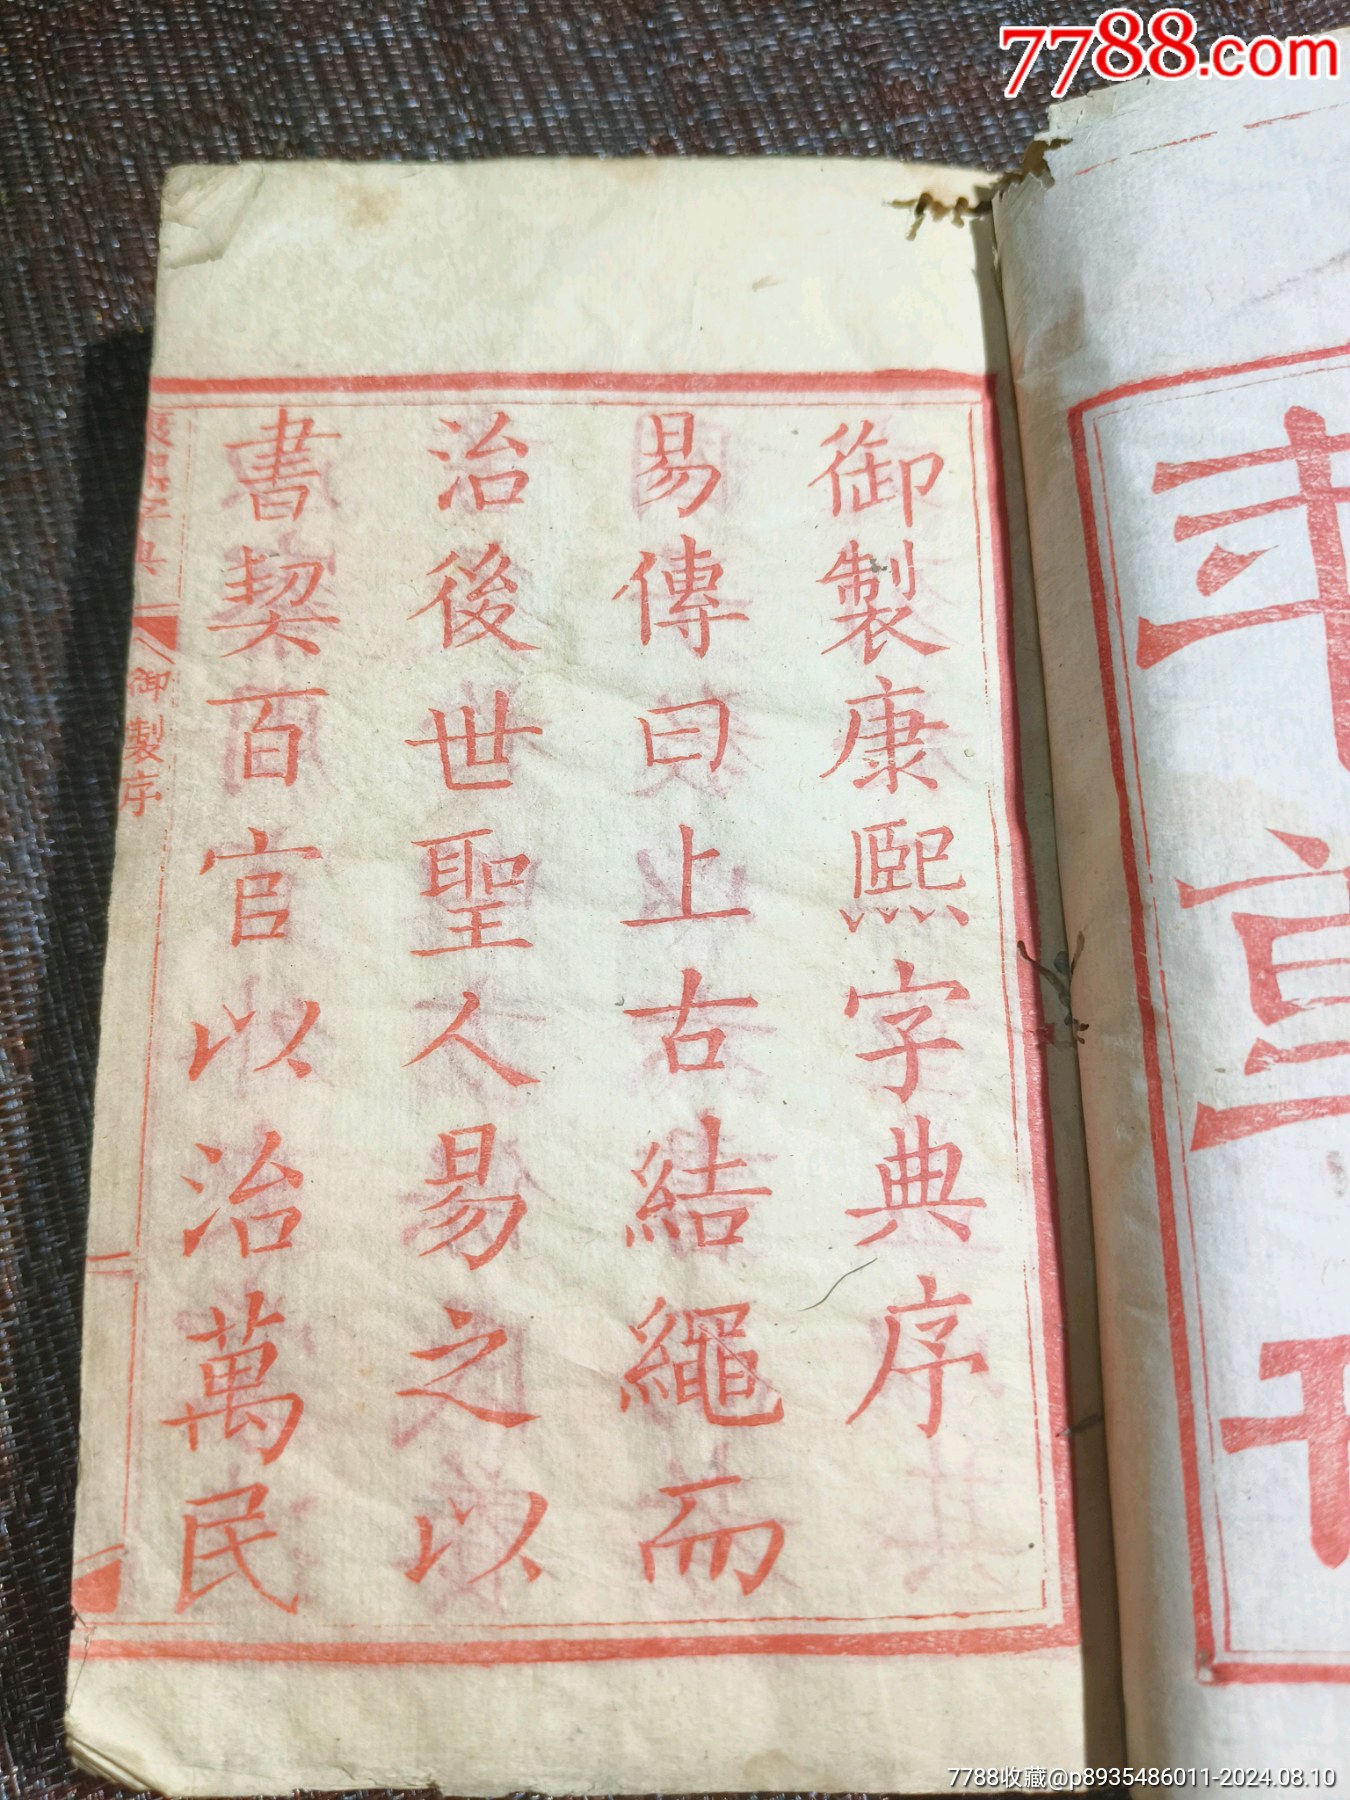 7788.com
御製康熙字典序
易傳曰上古結繩而
治後世聖人易之以
書契百官以治萬民
康熙字典
御製序
7788收藏@p8935486011-2024.08.10